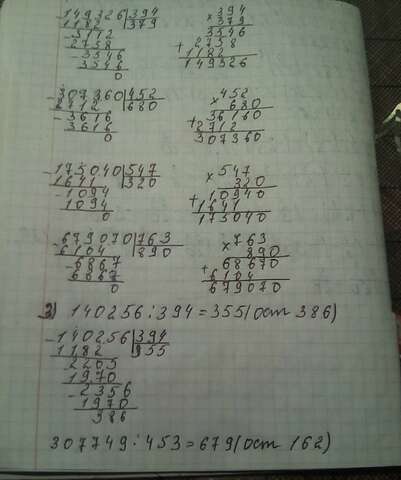 149326 | 394
1182 | 379
3112
2758
3546
3546
0
× 394
379
3546
+ 2758
1182
149326
307360 | 452
2712 | 680
3616
3616
0
× 452
680
36160
+ 2712
307360
175040 | 547
1641 | 320
1094
1094
0
× 547
320
10940
+ 1641
175040
679070 | 763
6104 | 890
6867
6867
0
× 763
890
68670
+ 6104
679070
2) 140256 : 394 = 355 (ост 386)
140256 | 394
1182 | 355
2205
1970
2356
1970
386
307749 : 453 = 679 (ост 162)